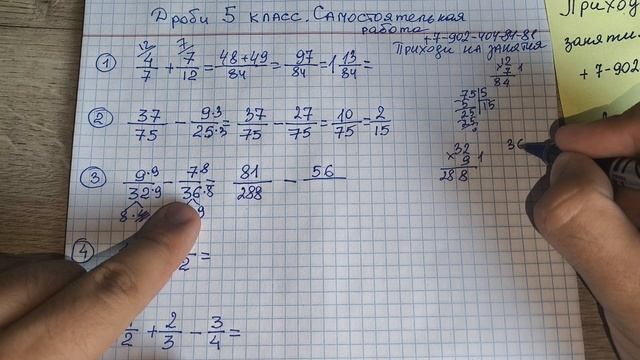 Дроби 5 класс. Самостоятельная
работа
+7-902-404-81-81
Приходи на занятия
Приход
заняти
+7-902
① 4/7 + 7/12 = 48+49/84 = 97/84 = 1 13/84 =
12 7
×12
7
84
1
② 37/75 − 9·3/25·3 = 37/75 − 27/75 = 10/75 = 2/15
75 5
5 15
25
25
③ 9·9/32·9 − 7·8/36·8 = 81/288 − 56
8·4
9
×32
9 1
288
36
④
2 =
1/2 + 2/3 − 3/4 =